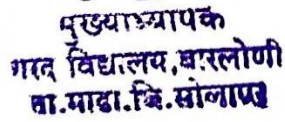 मुख्याध्यापक
भारत विद्यालय,बारलोणी
ता.माढा.जि.सोलापूर